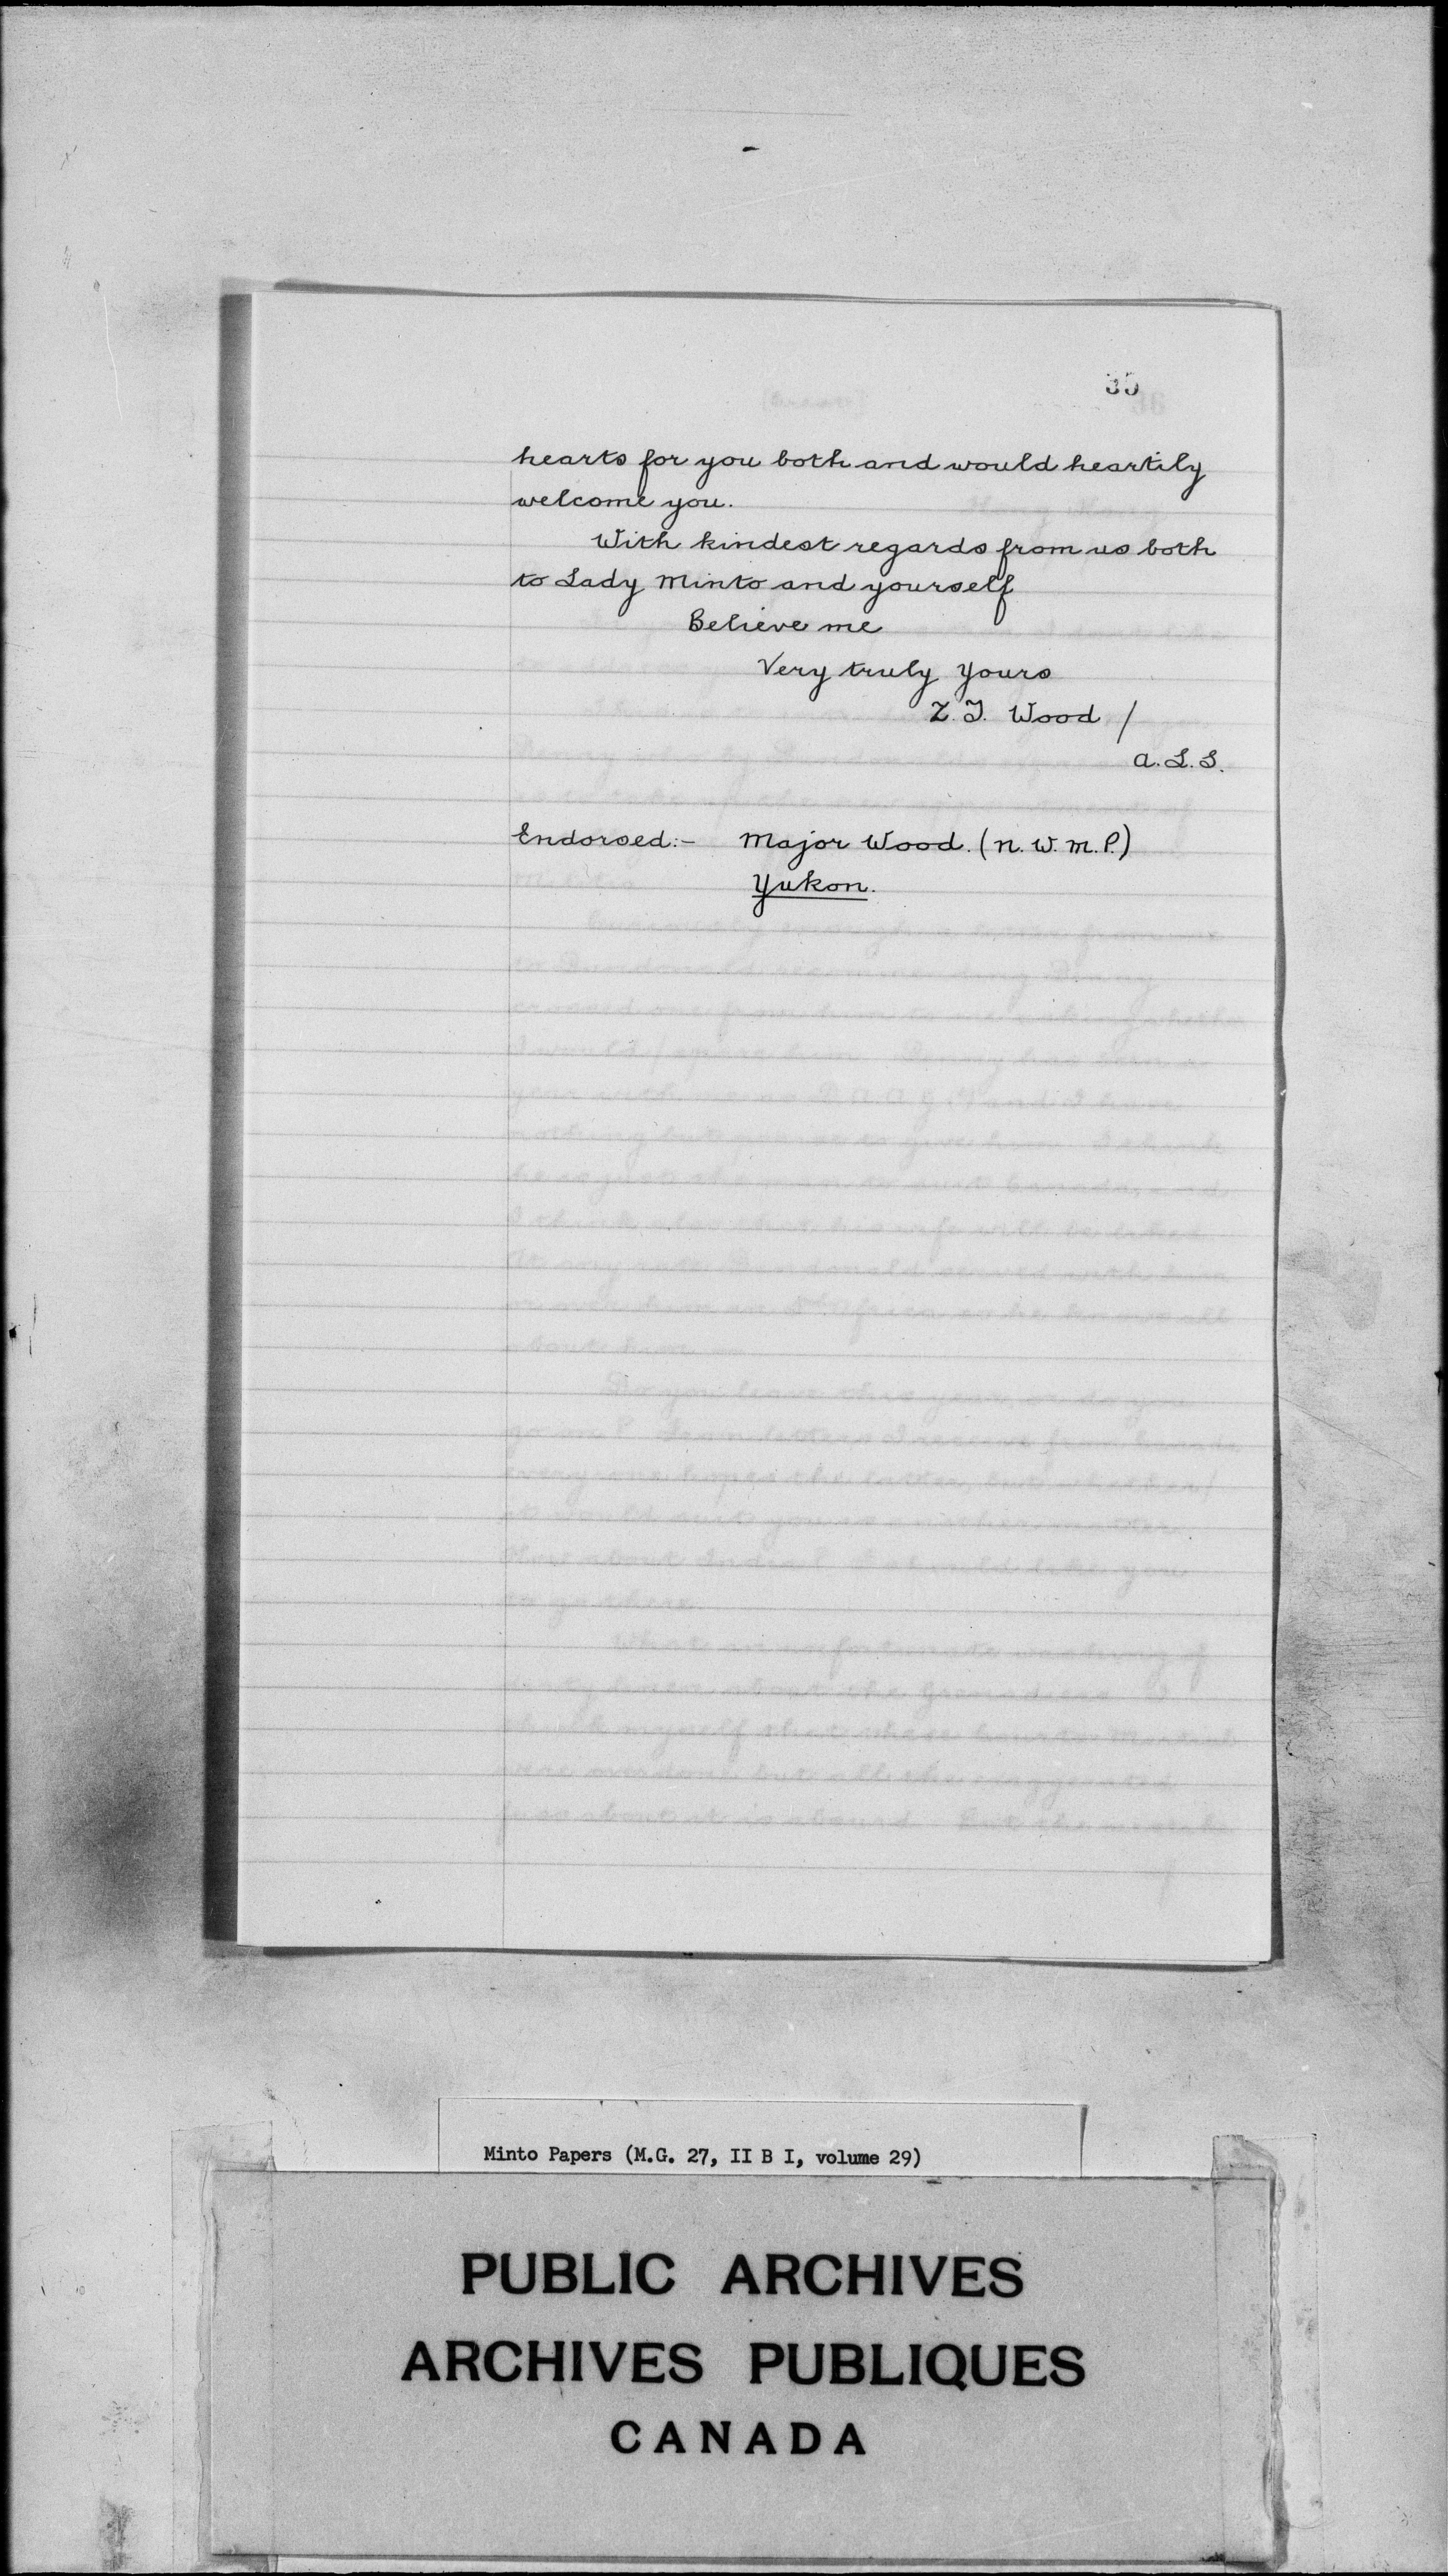 35
hearts for you both and would heartily
welcome you.
With kindest regards from us both
to Lady Minto and yourself
Believe me
Very truly yours
Z.T. Wood /
A.L.S.
Endorsed:- Major Wood. (N.W.M.P.)
Yukon.
Minto Papers (M.G. 27, II B I, volume 29)
PUBLIC ARCHIVES
ARCHIVES PUBLIQUES
CANADA